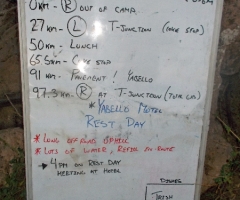 0KM - R OUT OF CAMP
27KM - L T-JUNCTION
50KM - LUNCH
65.5KM - COKE STOP
91KM - PAVEMENT! YABELLO
97.3KM - R AT T-JUNCTION
* YABELLO MOTEL
REST DAY
* LONG OFFROAD UPHILL
* LOTS OF WATER, REFILL EN ROUTE
→ 4PM ON REST DAY
MEETING AT HOTEL
DISHES
TRISH